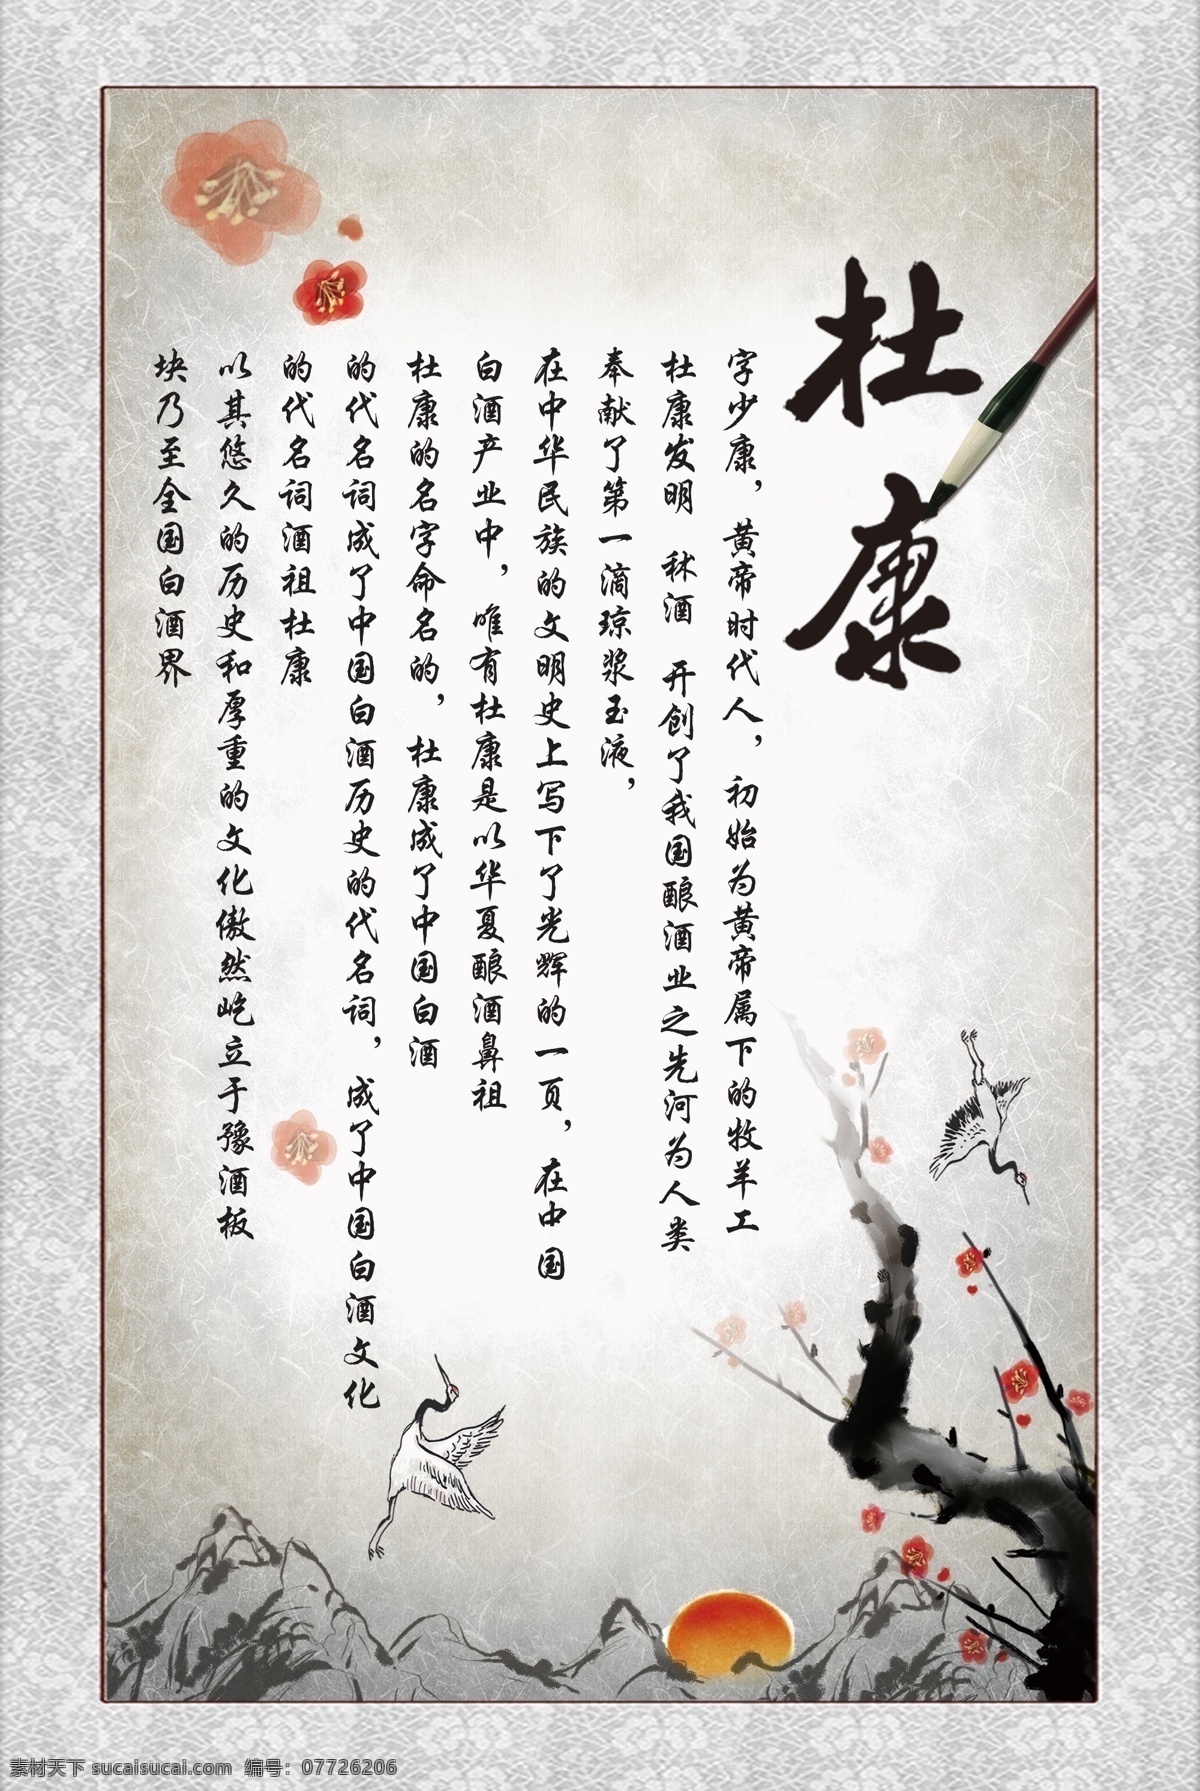 杜康
字少康，黄帝时代人，初始为黄帝属下的牧羊工
杜康发明 秫酒 开创了我国酿酒业之先河为人类
奉献了第一滴琼浆玉液，
在中华民族的文明史上写下了光辉的一页，在中国
白酒产业中，唯有杜康是以华夏酿酒鼻祖
杜康的名字命名的，杜康成了中国白酒
的代名词成了中国白酒历史的代名词，成了中国白酒文化
的代名词酒祖杜康
以其悠久的历史和厚重的文化傲然屹立于豫酒板
块乃至全国白酒界
素材天下 sucaisucai.com 编号：07726206